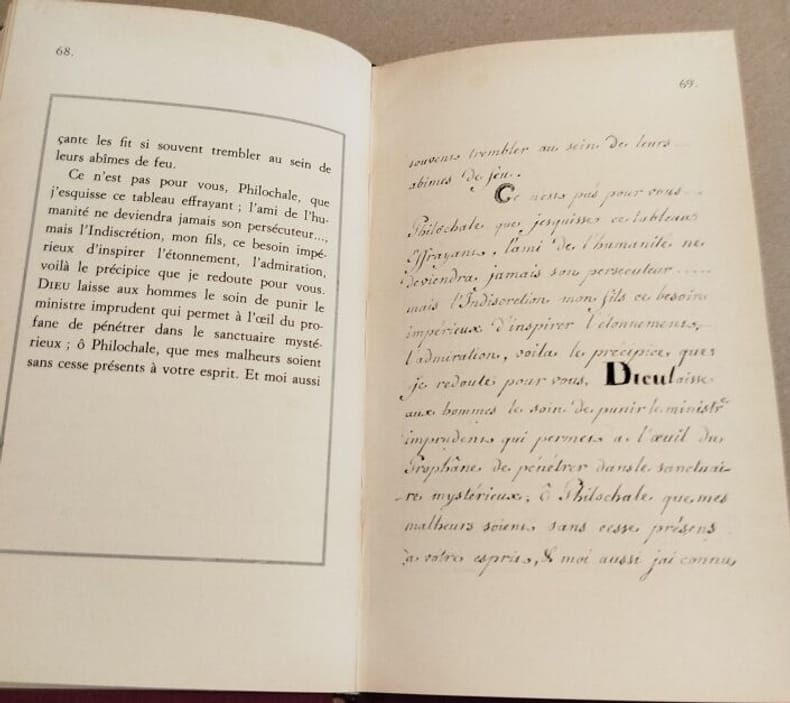 68.
çante les fit si souvent trembler au sein de
leurs abîmes de feu.
Ce n'est pas pour vous, Philochale, que
j'esquisse ce tableau effrayant ; l'ami de l'hu-
manité ne deviendra jamais son persécuteur...,
mais l'Indiscrétion, mon fils, ce besoin impé-
rieux d'inspirer l'étonnement, l'admiration,
voilà le précipice que je redoute pour vous.
DIEU laisse aux hommes le soin de punir le
ministre imprudent qui permet à l'œil du pro-
fane de pénétrer dans le sanctuaire mysté-
rieux ; ô Philochale, que mes malheurs soient
sans cesse présents à votre esprit. Et moi aussi
69.
souvent trembler au sein de leurs
abimes de feu.
Ce n'est pas pour vous
Philochale que j'esquisse ce tableau
Effrayant, l'ami de l'humanité ne
deviendra jamais son persecuteur.....
mais l'Indiscretion mon fils ce besoin
impérieux d'inspirer l'étonnement,
l'admiration, voila le précipice que
je redoute pour vous. Dieu laisse
aux hommes le soin de punir le ministre
imprudent qui permet a l'œuil du
Prophâne de pénétrer dans le sanctuai-
re mystérieux; ô Philochale que mes
malheurs soient sans cesse présens
a votre esprit, & moi aussi jai connu